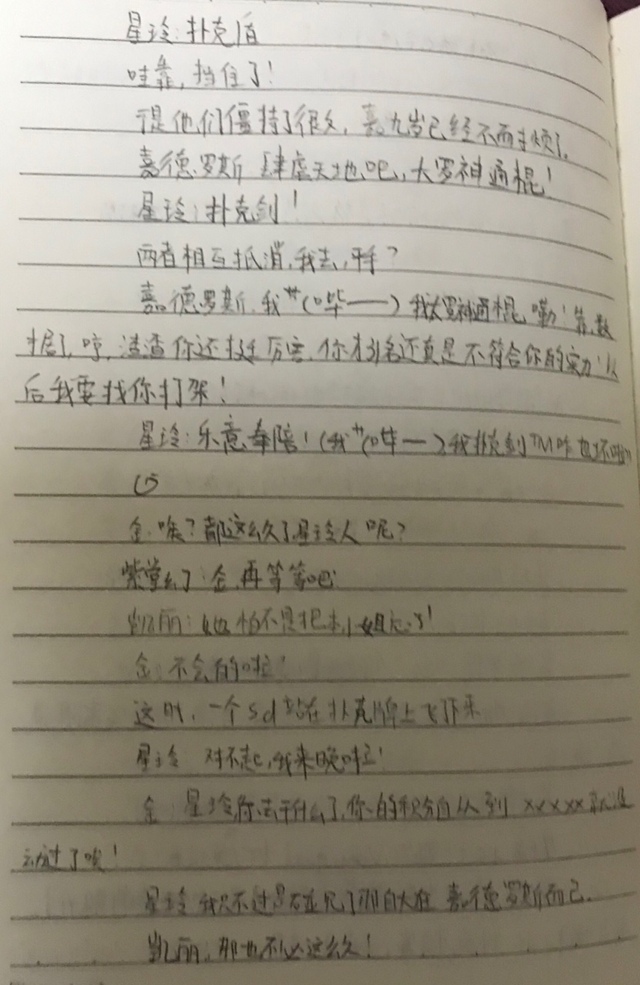 星玲:扑克盾
哇靠,挡住了!
于是他们僵持了很久,嘉九岁已经不耐烦了。
嘉德罗斯 肆虐天地吧,大罗神通棍!
星玲:扑克剑!
两者相互抵消,我去,平手?
嘉德罗斯,我艹(哔——)我大罗神通棍,嘞!靠,数
据了,哼,渣渣你还挺厉害,你排名还真是不符合你的实力!以
后我要找你打架!
星玲:乐意奉陪!(我艹(哔一)我扑克剑TM咋
金:唉?都这么久了星玲人呢?
紫堂幻:金,再等等吧
凯丽:她怕不是把本小姐忘了!
金:不会的啦!
这时,一个sd站在扑克牌上飞下来
星玲 对不起,我来晚啦!
金:星玲你去干什么了,你的积分自从到xxxxx就没
动过了唉!
星玲 我只不过是碰见了那自大狂 嘉德罗斯而已.
凯丽,那也不必这么久!